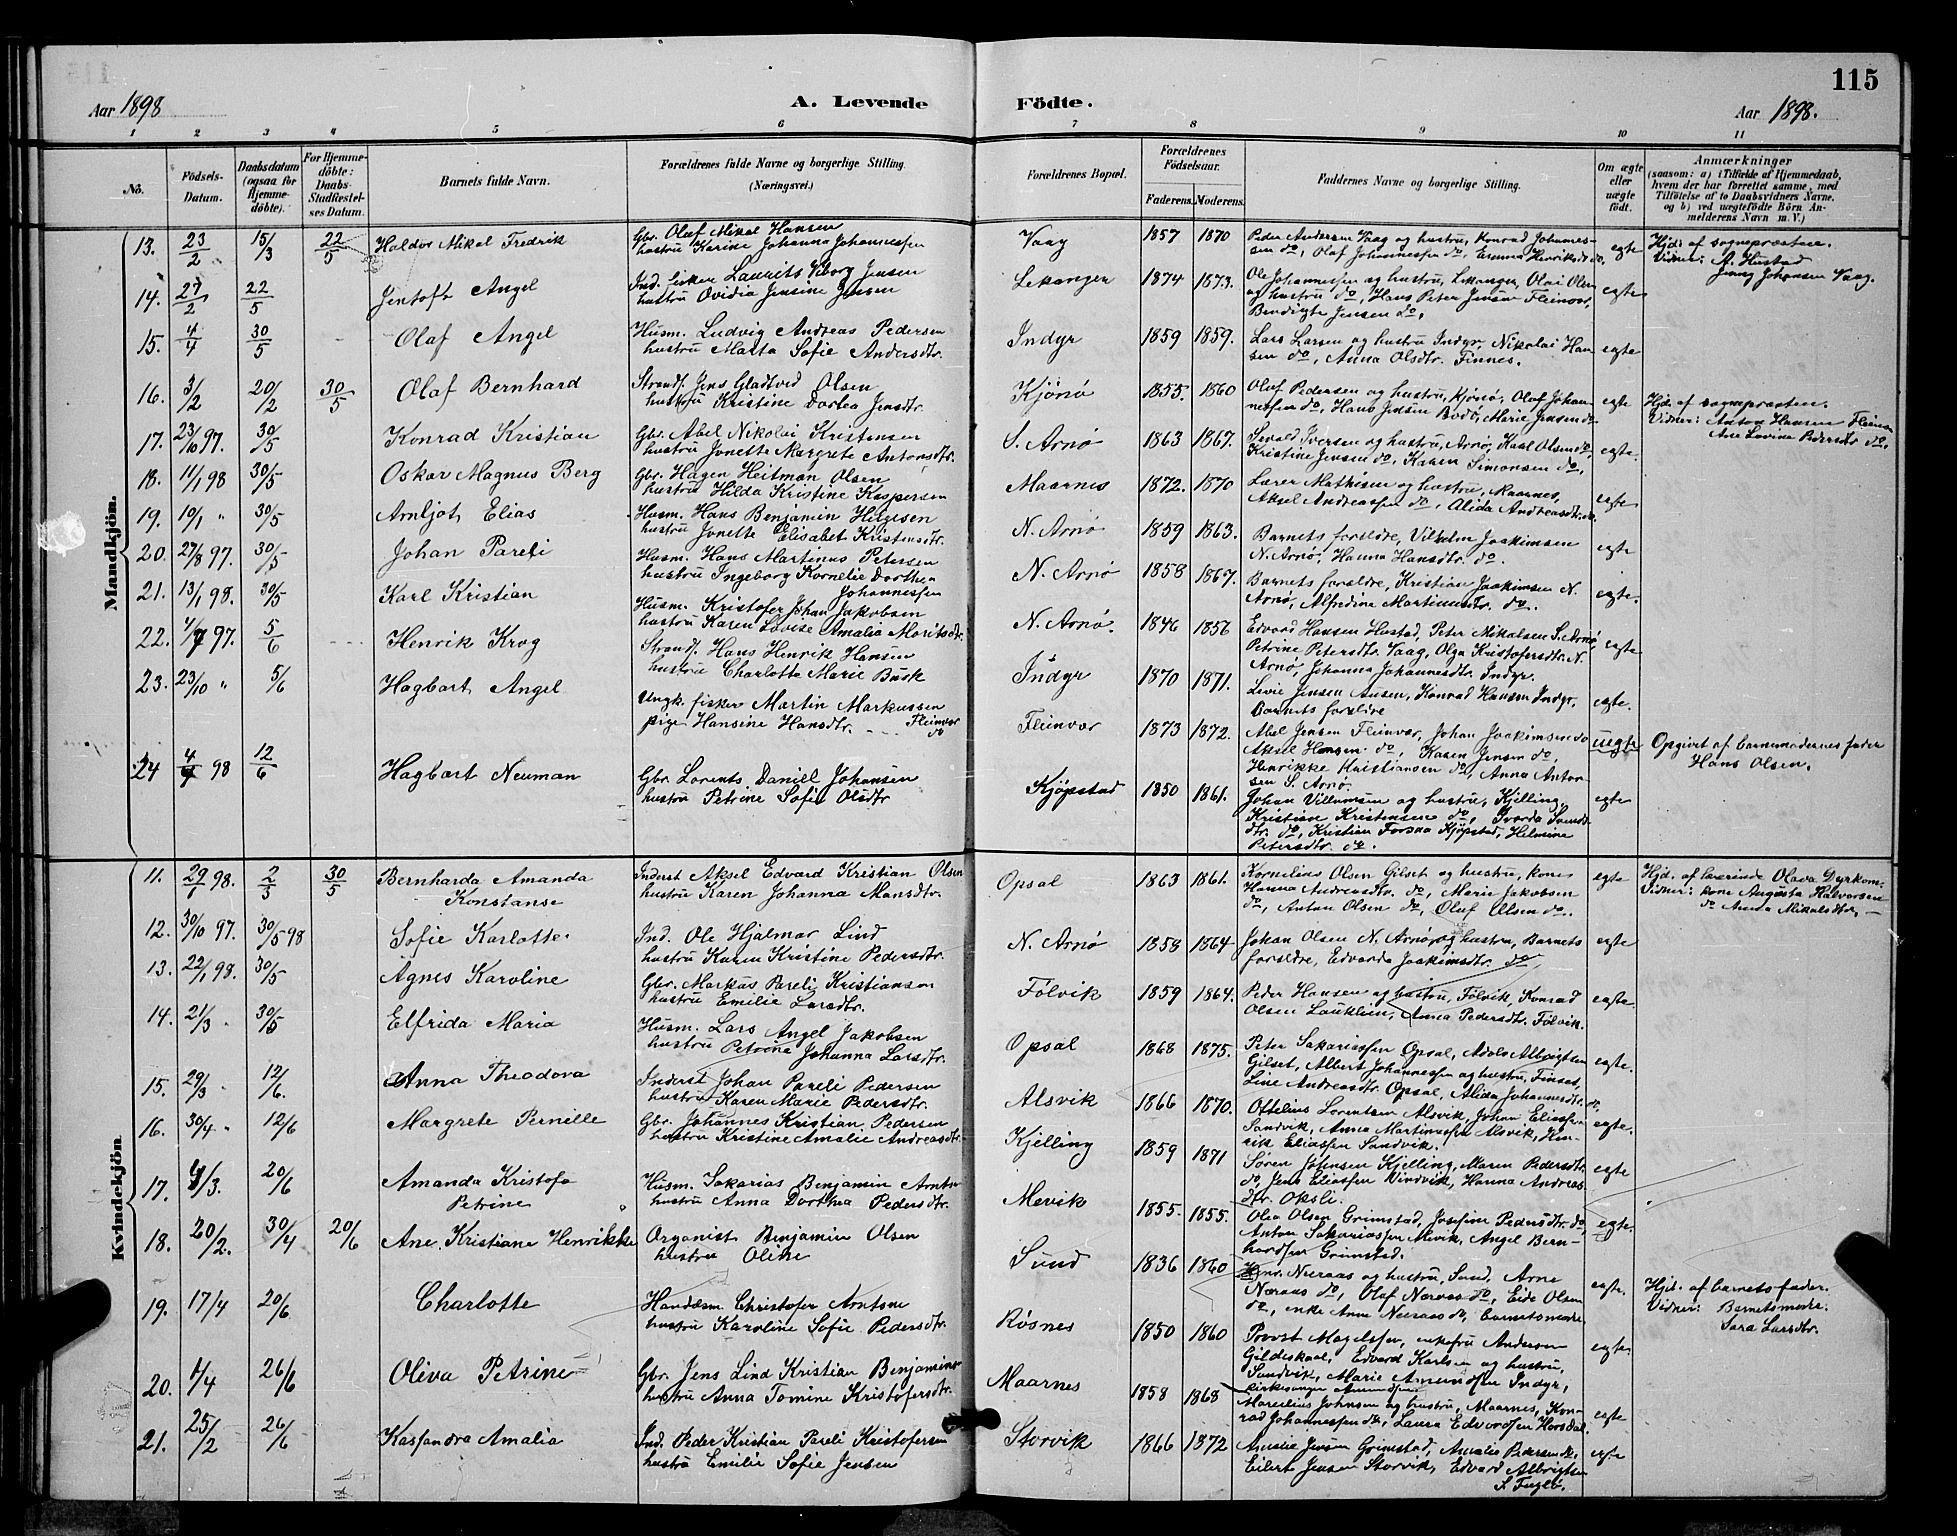 115
Aar 1898
A. Levende Födte.
Aar 1898.
1 2 3 4 5 6 7 8 9 10 11
No.
Födsels-Datum.
Daabsdatum (ogsaa for Hjemme-döbte).
For Hjemme-döbte: Daabs-Stadfæstel-ses Datum.
Barnets fulde Navn.
Forældrenes fulde Navne og borgerlige Stilling.
(Næringsvei.)
Forældrenes Bopæl.
Forældrenes Födselsaar.
Faderens. Moderens.
Faddernes Navne og borgerlige Stilling.
Om ægte eller uægte födt.
Anmærkninger
(saasom: a) i Tilfælde af Hjemmedaab,
hvem der har forrettet samme, med
Tilföielse af to Daabsvidners Navne.
og b) ved uægtefödte Börn An-
melderens Navn m. V.)
Mandkjön.
13. 23/2 15/3 22/5 Haldor Mikal Fredrik
Gbr. Olaf Mikal Hansen
hustru Karine Johanna Johannessen
Vaag 1857 1870
Peder Andersen Vaag og hustru, Konrad Johannes-
sen do, Olaf Johannessen do, Emma Henriksd. do.
egte
Hjd. af sognepræsten.
Vidner: A. Hustad
Jenny Johansen Vaag.
14. 27/2 22/5 Jentoft Angel
Ind. fisker Laurits Viborg Jensen
hustru Ovidia Jensine Jensen
Lekanger 1874 1873.
Ole Johannessen og hustru, Lekanger, Olai Olsen
og hustru do, Hans Peter Jensen Fleinvær,
Bendigte Jensen do.
egte
15. 4/4 30/5 Olaf Angel
Husm. Ludvig Andreas Pedersen
hustru Marta Sofie Andersdtr.
Indyr 1859 1859.
Lars Larsen og hustru Indyr, Nikolai Han
sen do, Anna Olsdtr. Finnes.
egte
16. 3/2 20/2 30/5 Olaf Bernhard
Strands. Jens Gladtved Olsen
hustru Kristine Dortea Jensdtr.
Kjönö 1855. 1860
Olaf Pedersen og hustru, Kjönö, Olaf Johan-
nessen do, Hans Jensen Bodö, Marie Jensen do
egte
Hjd. af sognepræsten.
Vidner: Anton Hansen Fleinv.
Ane Lovina Pedersdtr do.
17. 23/10 97. 30/5 Konrad Kristian
Gbr. Abel Nikolai Kristensen
hustru Jonette Margrete Antonsdtr.
S. Arnö 1863 1867.
Sevald Iversen og hustru, Arnö, Karl Olsen do,
Kristine Jensen do, Karen Simonsen do.
egte.
18. 11/1 98 30/5 Oskar Magnus Berg
Gbr. Hagen Heitman Olsen
hustru Hilda Kristine Kaspersen
Maarnes 1872. 1870
Lærer Mathisen og hustru, Maarnes,
Aksel Andreassen do, Alida Andreasdtr. do.
egte
19. 10/1 " 30/5 Arnljot Elias
Husm. Hans Benjamin Hugesen
hustru Jonette Elisabet Kristensdtr.
N. Arnö 1859 1863.
Barnets forældre, Vilhelm Joakimsen
N. Arnö, Hanna Hansdtr. do.
egte
20. 27/8 97. 30/5 Johan Pareli
Husm. Hans Martinus Petersen
hustru Ingeborg Kornelie Dorthea
Johannessen
N. Arnö 1858 1867.
Barnets forældre, Kristian Joakimsen N.
Arnö, Alfredine Martinusdtr. do.
egte.
21. 13/1 98. 30/5 Karl Kristian
Husm. Kristofer Johan Jakobsen
hustru Karen Lovise Amalia Moritsdtr.
N. Arnö. 1846 1856
Edvard Hansen Hustad, Peter Mikalsen S. Arnö,
Petrine Petersdtr. Vaag, Olga Kristofersdtr. N.
Arnö, Johanna Johannesdtr. Indyr.
egte
22. 1/7 97. 5/6 Henrik Krog
Strands. Hans Henrik Hansen
hustru Charlotta Marie Busk
Indyr 1870 1871.
Levie Jensen Ansen, Konrad Hansen Indyr,
Barnets forældre
egte.
23. 23/10 " 5/6 Hagbart Angel
Ungk. fisker Martin Markussen
pige Hansine Hansdtr. Fleinvær do
Fleinvær 1873 1872.
Abel Jensen Fleinvær, Johan Joakimsen do
Aksel Hansen do, Karen Jensen do,
Henrikke Kristiansen do, Anna Anton-
sen S. Arnö.
uegte
Opgivet af barnemoderens fader
Hans Olsen.
24 4/4 98 12/6 Hagbart Neuman
Gbr. Lorents Daniel Johansen
hustru Petrine Sofie Olsdtr
Kjöpstad 1850 1861.
Johan Villumsen og hustru, Kjelling,
Kristian Kristensen do, Gvarda Svends-
dtr. do, Kristian Forsaa Kjöpstad, Helmine
Petersdtr. do.
egte
Kvindekjön.
11. 29/1 98. 2/3 30/5 Bernharda Amanda
Konstanse
Inderst Aksel Edvard Kristian Olsen
hustru Karen Johanna Monsdtr.
Opsal 1863 1861.
Kornelius Olsen Gilset og hustru, kone
Hanna Andreasdtr. do, Marie Jakobsen
do, Anton Olsen do, Oluf Olsen do.
egte
Hjd. af lærerinde Olava Dyrkorn.
Vidner: kone Augusta Halvorsen
do Anna Mikalsdtr.
12. 30/10 97. 30/5 98 Sofie Karlotte
Ind. Ole Hjalmar Lind
hustru Karen Kristine Pedersdtr.
N. Arnö 1858 1864
Johan Olsen N. Arnö, og hustru, Barnets
forældre, Edvarda Joakimsdtr. do
egte
13. 22/1 98. 30/5 Agnes Karoline
Gbr. Markus Pareli Kristiansen
hustru Emilie Larsdtr.
Fölvik 1859 1864.
Peder Hansen og hustru, Fölvik, Konrad
Olsen Lauklien, Anna Pedersdtr. Fölvik.
egte.
14. 21/3 30/5 Elfrida Maria
Husm. Lars Angel Jakobsen
hustru Petrine Johanna Larsdtr.
Opsal 1868 1875.
Peter Sakariassen Opsal, Adolf Albrigtsen
Gilset, Albert Johannessen og hustru, Finset,
Line Andreasdtr. Opsal, Alida Johannesdtr. do.
egte.
15. 29/3 12/6. Anna Theodora
Inderst Johan Pareli Pedersen
hustru Karen Marie Pedersdtr.
Alsvik 1866 1870.
Ottelius Lorentsen Alsvik, Johan Eliassen
Sandvik, Anna Martinussen Alsvik, Hen-
rik Eliassen Sandvik.
egte.
16. 30/4 " 12/6 Margrete Pernille
Gbr. Johannes Kristian Pedersen
hustru Kristine Amalie Andreasdtr.
Kjelling 1859 1871
Sören Johnsen Kjelling, Maren Pedersdtr.
do, Jens Eliassen Vindvik, Hanna Andreas
dtr. Oksli.
egte
17. 4/3. 20/6 Amanda Kristofa
Petrine
Husm. Sakarias Benjamin Arntsen
hustru Anna Dorthea Pedersdtr.
Mevik 1855. 1855.
Olea Olsen Grimstad, Josefine Pedersdtr. do,
Anton Sakariassen Mevik, Angel Bern-
hardsen Grimstad.
egte.
18. 20/2. 30/4 20/6 Ane Kristiane Henrikke
Organist Benjamin Olsen
hustru Oline
Sund 1836 1860
Hmr. Næraas og hustru, Sund, Arne
Næraas do, Olaf Næraas do, Eide Olsen
do, enke Anne Næraas do, Barnetsmoder.
egte.
Hjd. af barnets fader.
Vidner: Barnetsmoder.
Sara Larsdtr.
19. 17/4 20/6 Charlotte
Handesm. Christofer Arntsen
hustru Karoline Sofie Pedersdtr.
Rösnes 1850 1860
Provst Magelssen, enkefru Andersen
Gildeskaal, Edvard Karlsen og hustru,
Sandvik, Marie Amundsen Indyr,
kirkesanger Amundsen
egte.
20. 1/4 26/6 Oliva Petrine
Gbr. Jens Lind Kristian Benjamins.
hustru Anna Tomine Kristofersdtr.
Maarnes 1858 1868
Marcelius Johnsen og hustru, Maarnes, Kon-
rad Johannessen do, Laura Edvardsen Horsdal.
egte
21. 25/2 26/6 Kassandra Amalia
Ind. Peder Kristian Pareli Kristofersen
hustru Emilie Sofie Jensen
Storvik 1866 1872
Amalie Jensen Grimstad, Amalie Pedersen do,
Eilert Jensen Storvik, Edvard Albrigtsen
S. Fuglö.
egte